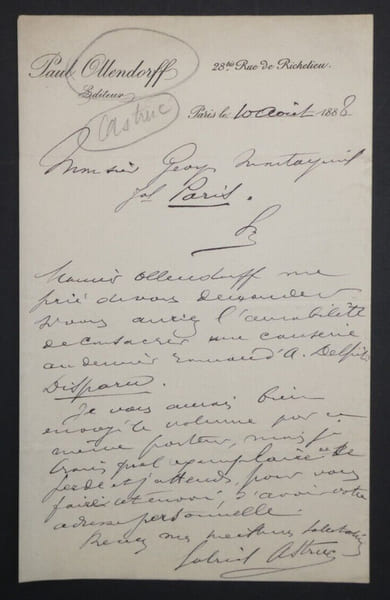 Paul Ollendorff
28 bis Rue de Richelieu.
Editeur
Astruc
Paris le 10 Août 1888
Monsieur Georges Montorgueil
Jal Paris.
Monsieur Ollendorff me
prie de vous demander
si vous auriez l'amabilité
de consacrer une causerie
au dernier roman d'A. Delpit
Disparu.
Je vous aurais bien
envoyé le volume par ce
même porteur, mais je
crains que l'exemplaire ne se
perde et j'attends, pour vous
faire cet envoi, d'avoir votre
adresse personnelle.
Recevez mes meilleures salutations
Gabriel Astruc